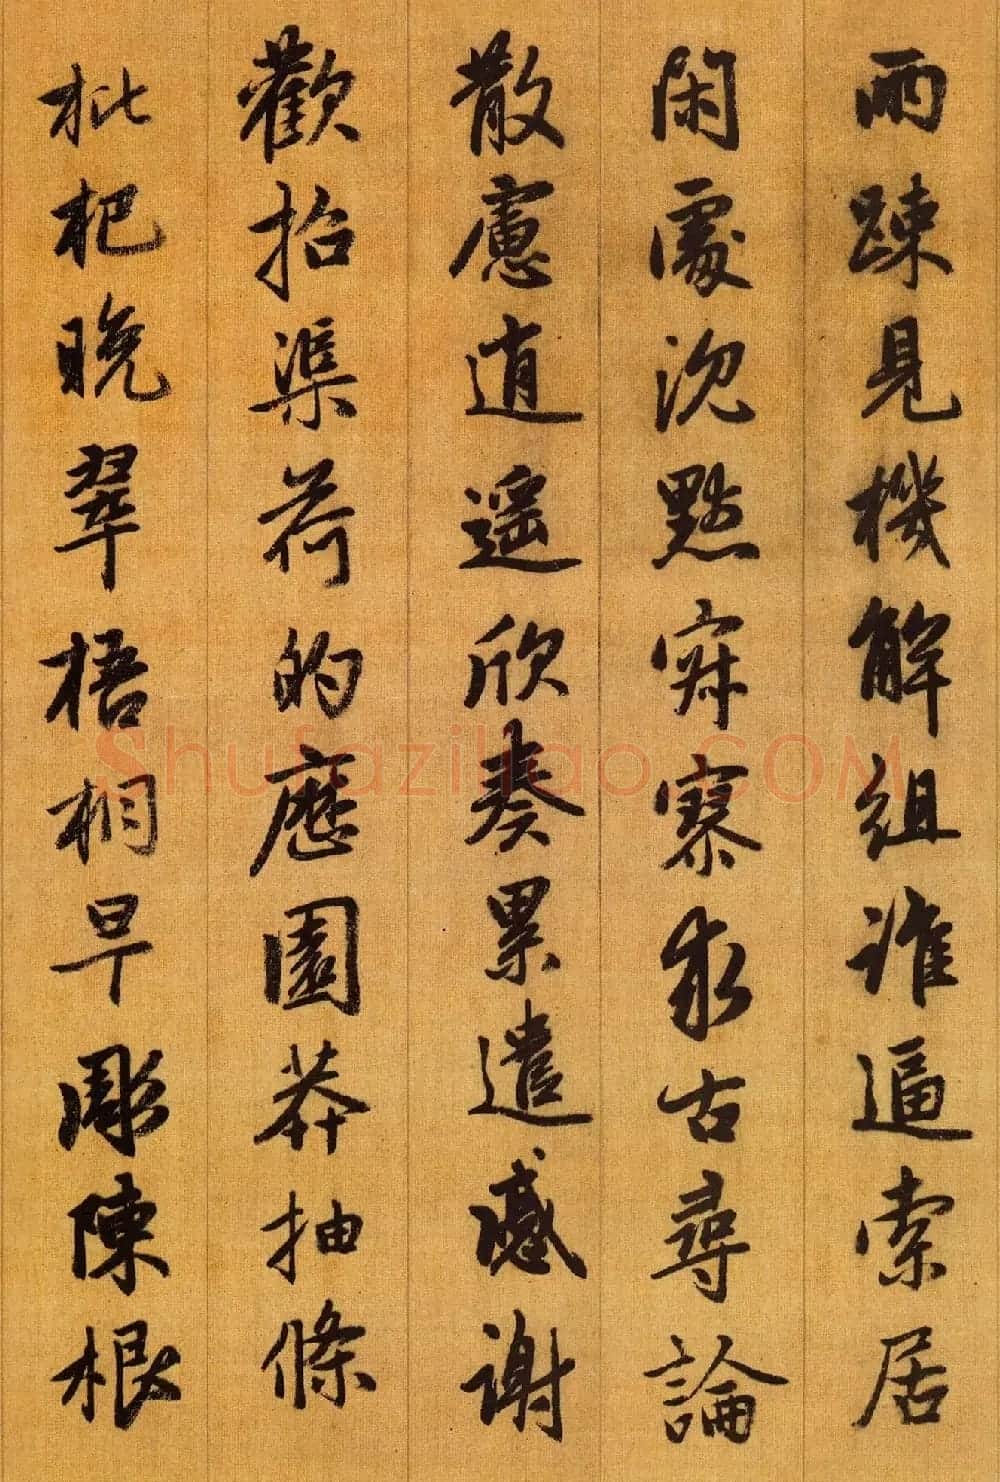 两踈見機解組誰逼索居
閑處沉默寂寥求古尋論
散慮逍遙欣奏累遣慼謝
歡招渠荷的歷園莽抽條
枇杷晚翠梧桐早彫陳根
Shufaziliao.COM